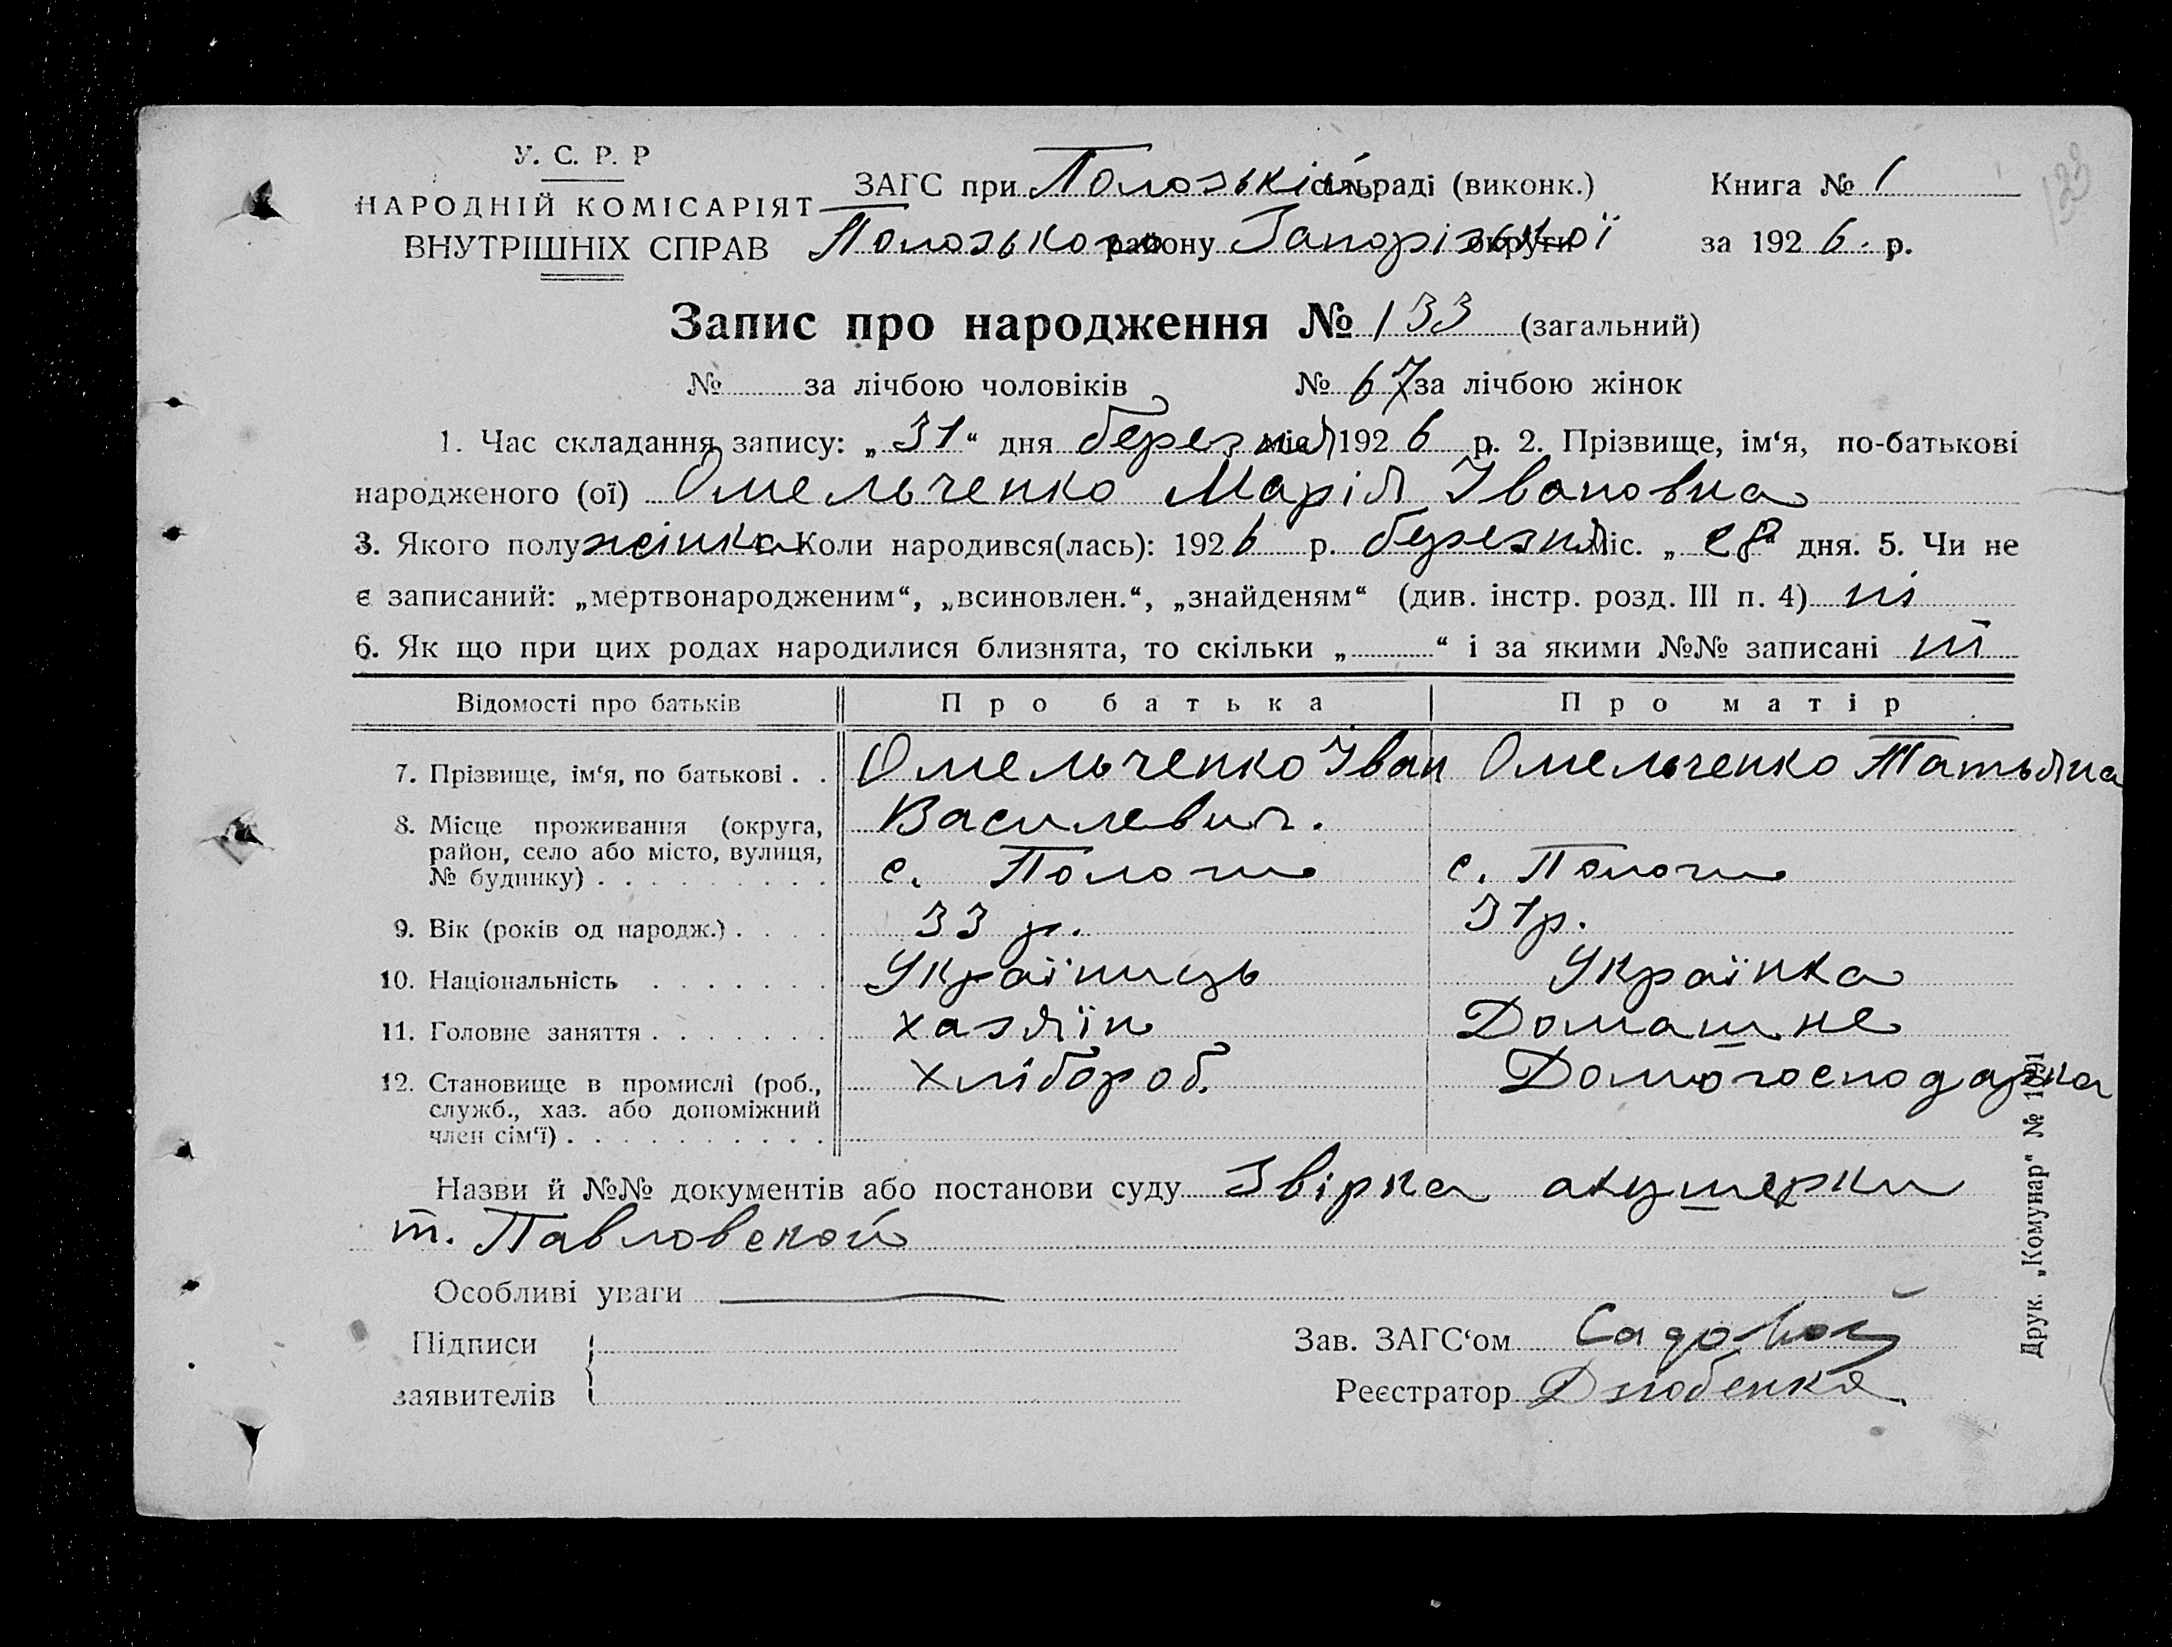 У. С. Р. Р
НАРОДНІЙ КОМІСАРІЯТ
ВНУТРІШНІХ СПРАВ
ЗАГС при Полозькій сільраді (виконк.) Книга № 1
Полозького району Запорізької округи за 1926 р.
133
Запис про народження № 133 (загальний)
№ за лічбою чоловіків № 67 за лічбою жінок
1. Час складання запису: „31“ дня березня міс. 1926 р. 2. Прізвище, ім‘я, по-батькові
народженого (ої) Омельченко Марія Івановна
3. Якого полу жінка Коли народився(лась): 1926 р. березня міс. „28“ дня. 5. Чи не
є записаний: „мертвонародженим“, „всиновлен.“, „знайденям“ (див. інстр. розд. III п. 4) ні
6. Як що при цих родах народилися близнята, то скільки „ “ і за якими №№ записані ні
Відомості про батьків Про батька Про матір
7. Прізвище, ім‘я, по батькові . . Омельченко Іван Омельченко Татьяна
Василевич.
8. Місце проживання (округа,
район, село або місто, вулиця,
№ будинку) . . . . . . . . . с. Пологи с. Пологи
9. Вік (років од народж.) . . . . 33 р. 31 р.
10. Національність . . . . . . . Українець Українка
11. Головне заняття . . . . . . . хазяїн Домашнє
12. Становище в промислі (роб., хлібороб. Домогосподарка
служб., хаз. або допоміжний
член сім‘ї) . . . . . . . . . .
Назви й №№ документів або постанови суду Звірка акушерки
т. Павловской
Особливі уваги
Підписи
заявителів
Зав. ЗАГС‘ом Садовой
Реєстратор
Друк. „Комунар“ № 1091